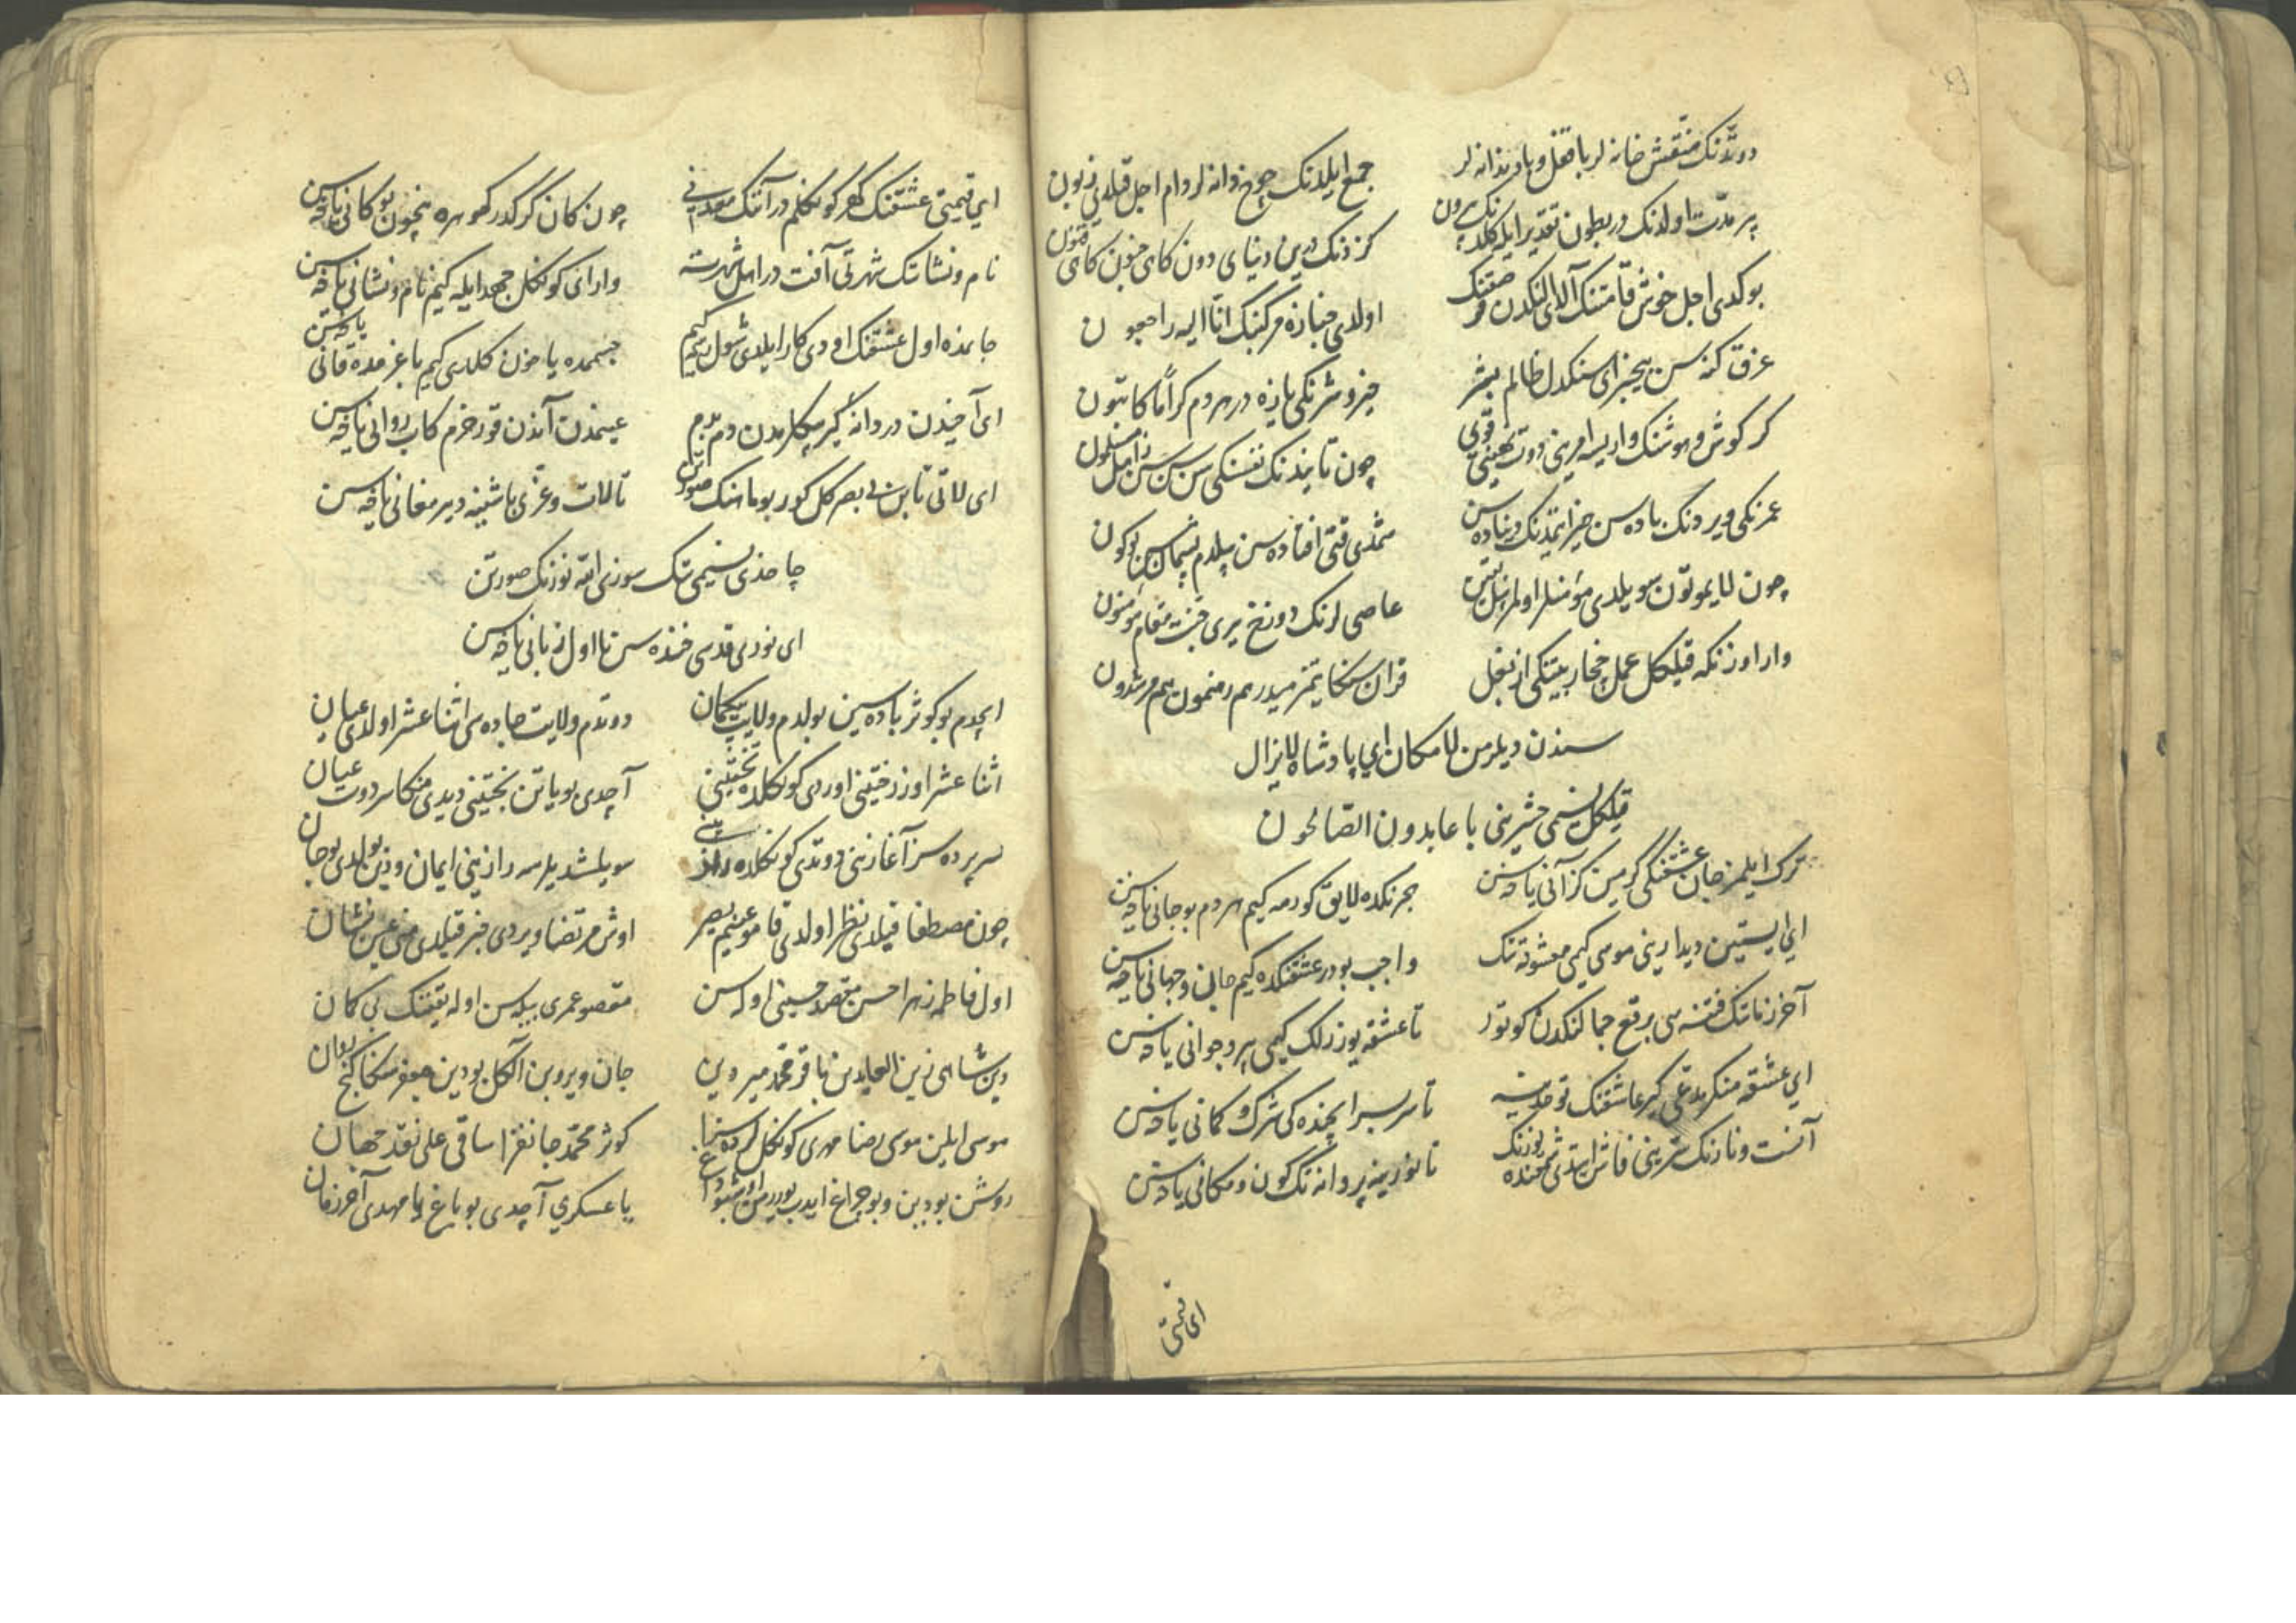 دوتدنک منقش خانه لر باقفل و با دربندانه لر
جمع ایلدنک چوخ دانه لر دام اجل قیلدی زبون
بر مدت اولدنک در بطون تقدیر ایله کلدنک برون
کزدنک بو دنیای دون کاهی جنون کاهی فنون
بوکدی اجل خوش قامتنک آلدی الکدن
اولدی جنازه مرکبنک انا الیه راجعون
غرق کنه سن بیخبر ای سنکدل ظالم بشر
خیر و شرنکی یازه در هردم کراما کاتبون
کر کوش و هوشنک وار ایسه امرینی دوت
چون تانیدنک نفسنکی سن
عمرنکی ویردنک باده سن خیر ایتمدنک دنیاده سن
شمدی قتی افتاده سن بیلدم پشیمان سن بوکون
چون لایموتون سویلدی مؤمنلر اولمز
عاصی لرنک دوزخ یری جنت مقام مؤمنون
وار اوزنکه قیلکل عمل
قرآن سنکا یتمزمیدر هم رهنمون هم مرشدون
سندن دیلرمن لامکان ای پادشاه لایزال
قیلکل نسیمی حشرینی با عابدون الصالحون
ترک ایلمز جان عشقنکی کرمین کز آنی یاخه سن
هجرنکده لایق کورمه کیم هردم بو جانی یاخه سن
ای ایستین دیدارینی موسی کیمی معشوقه نک
واجب بودر عشقنکده کیم جان و جهانی یاخه سن
آخر زمانک فتنه سی برقع جمالنکدن کوتور
تا عشقه یوز زلف کیمی پیر و جوانی یاخه سن
ای عشقه منکر مدعی کیر عاشقنک توحیدینه
تا سربسر ایچنده کی شرک و کمانی یاخه سن
آنست و نارنک سرینی فاش ایتدی شمعنده یوزنک
تا نورینه پروانه تک کون و مکانی یاخه سن
ای قیمتی
ای قیمتی عشقنک کهر کوکلم در آننک معدنی
چون کان کرکدر کوهره نیچون بو کانی یاخه سن
نام و نشاننک شهرتی آفت در اهل شهرته
وار ای کوکل جهد ایله کیم نام و نشانی یاخه سن
جانمده اول عشقنک اودی کار ایلدی شول رسم کیم
جسمده یا خون کلدی کیم باغرمده قانی یاخه سن
ای آخیدن دردانه لر کیرپیکلرمدن دم بدم
عینمدن آندن قورخرم کاب روانی یاخه سن
ای لاتی تاپن بی بصر کل کور بو ماهنک صورتن
تا لات و عزی باشینه دیر مغانی یاخه سن
چاخدی نسیمی تک سوزی الله نورنک صورتن
ای نودی قدسی خنده سن تا اول زبانی یاخه سن
ایچدم بو کوثر باده سین بولدم ولایت بیکمان
دوتدم ولایت جاده سی اثنا عشر اولدی عیان
اثنا عشر اوز رختینی اوردی کوکلده تختینی
آچدی بو یاتن بختینی دیدی منکا سر دوت عیان
سر پرده سر آغازنی دوتدی کوکلده رازنی
سویلشدیلر سر رازینی ایمان و دین بولدی بو جان
چون مصطفا قیلدی نظر اولدی قامو عینم بصر
اوش مرتضا ویردی خبر قیلدی منی عین نشان
اول فاطمه زهرا حسن مقصد حسینی اوله سن
مقصود عمری بیله سن اوله یقیننک بی کمان
دین شاهی زین العابدین باقر محمد میر دین
جان ویر و بن آلکل بو دین جعفر سنکا کنج روان
موسی ایلین موسی رضا مهری کوکللرده سزا
کوثر محمد جانفزا ساقی علی نقد جهان
روشن بو دین و بو چراغ
یا عسکری آچدی بو باغ یا مهدی آخر زمان